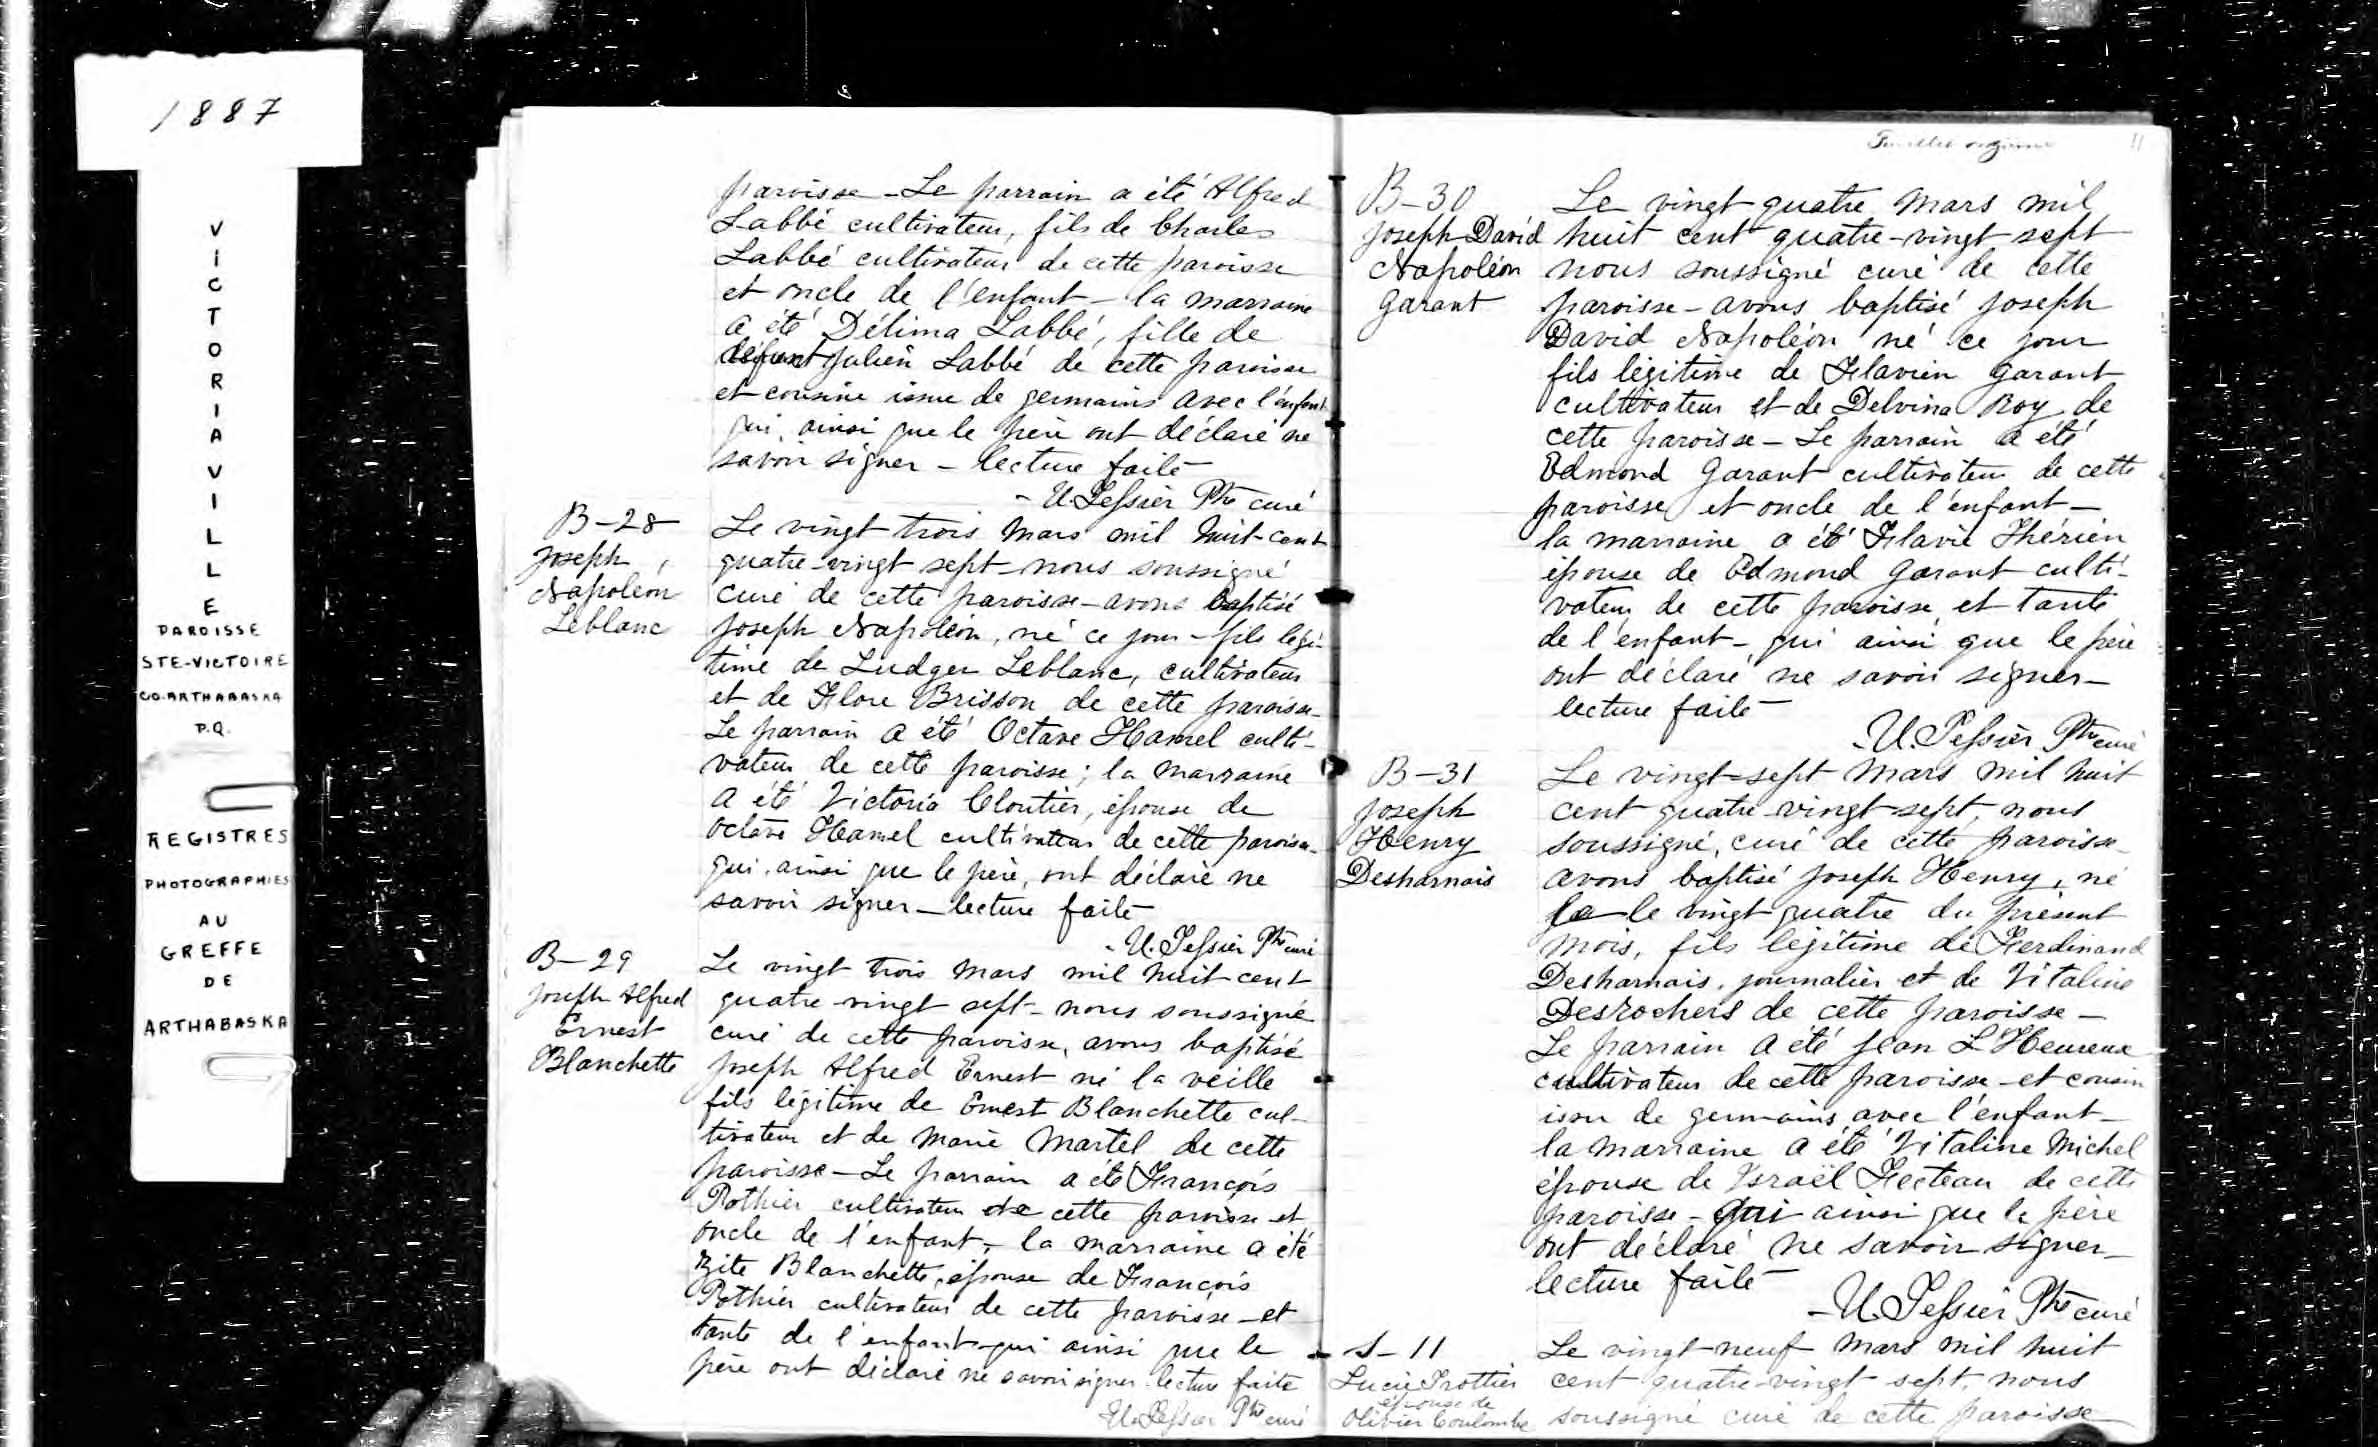 1887
VICTORIAVILLE
PAROISSE
STE-VICTOIRE
CO. ARTHABASKA
P.Q.
REGISTRES
PHOTOGRAPHIES
AU
GREFFE
DE
ARTHABASKA
paroisse - Le parrain a été Alfred
Labbé cultivateur, fils de Charles
Labbé cultivateur de cette paroisse
et oncle de l'enfant - la marraine
a été Délima Labbé, fille de
défunt Julien Labbé de cette paroisse
et cousine issue de germains avec l'enfant
qui, ainsi que le père ont déclaré ne
savoir signer - lecture faite
- U. Tessier Ptre curé
B-28
Joseph
Napoléon
Leblanc
Le vingt trois Mars mil huit-cent
quatre-vingt sept - nous soussigné
curé de cette paroisse - avons baptisé
Joseph Napoléon, né ce jour - fils légi-
time de Ludger Leblanc, cultivateur
et de Flore Brisson de cette paroisse -
Le parrain a été Octave Hamel culti-
vateur de cette paroisse ; la marraine
a été Victoria Cloutier, épouse de
Octave Hamel cultivateur de cette paroisse -
qui, ainsi que le père, ont déclaré ne
savoir signer - lecture faite
- U. Tessier Ptre curé
B-29
Joseph Alfred
Ernest
Blanchette
Le vingt trois Mars mil huit cent
quatre-vingt sept - nous soussigné
curé de cette paroisse, avons baptisé
Joseph Alfred Ernest né la veille
fils légitime de Ernest Blanchette cul-
tivateur et de Marie Martel de cette
paroisse - Le parrain a été François
Pothier cultivateur de cette paroisse et
oncle de l'enfant, - la marraine a été
Zite Blanchette, épouse de François
Pothier cultivateur de cette paroisse - et
tante de l'enfant - qui ainsi que le
père ont déclaré ne savoir signer - lecture faite
U. Tessier Ptre curé
Feuillet onzième
11
B-30
Joseph David
Napoléon
Garant
Le vingt quatre Mars mil
huit cent quatre-vingt sept
nous soussigné curé de cette
paroisse - avons baptisé Joseph
David Napoléon né ce jour
fils légitime de Flavien Garant
cultivateur et de Delvina Roy de
cette paroisse - Le parrain a été
Edmond Garant cultivateur de cette
paroisse et oncle de l'enfant -
la marraine a été Flavie Thérien
épouse de Edmond Garant culti-
vateur de cette paroisse et tante
de l'enfant - qui ainsi que le père
ont déclaré ne savoir signer -
lecture faite
- U. Tessier Ptre curé
B-31
Joseph
Henry
Desharnais
Le vingt-sept Mars mil huit
cent quatre-vingt sept, nous
soussigné, curé de cette paroisse -
avons baptisé Joseph Henry, né
le vingt quatre du présent
mois, fils légitime de Ferdinand
Desharnais, journalier et de Vitaline
Desrochers de cette paroisse -
Le parrain a été Jean L'Heureux
cultivateur de cette paroisse - et cousin
issu de germains avec l'enfant -
la marraine a été Vitaline Michel
épouse de Israël Fecteau de cette
paroisse - qui ainsi que le père
ont déclaré ne savoir signer -
lecture faite
- U. Tessier Ptre curé
S-11
Lucie Trottier
épouse de
Olivier Coulombe
Le vingt-neuf Mars mil huit
cent quatre-vingt sept, nous
soussigné curé de cette paroisse